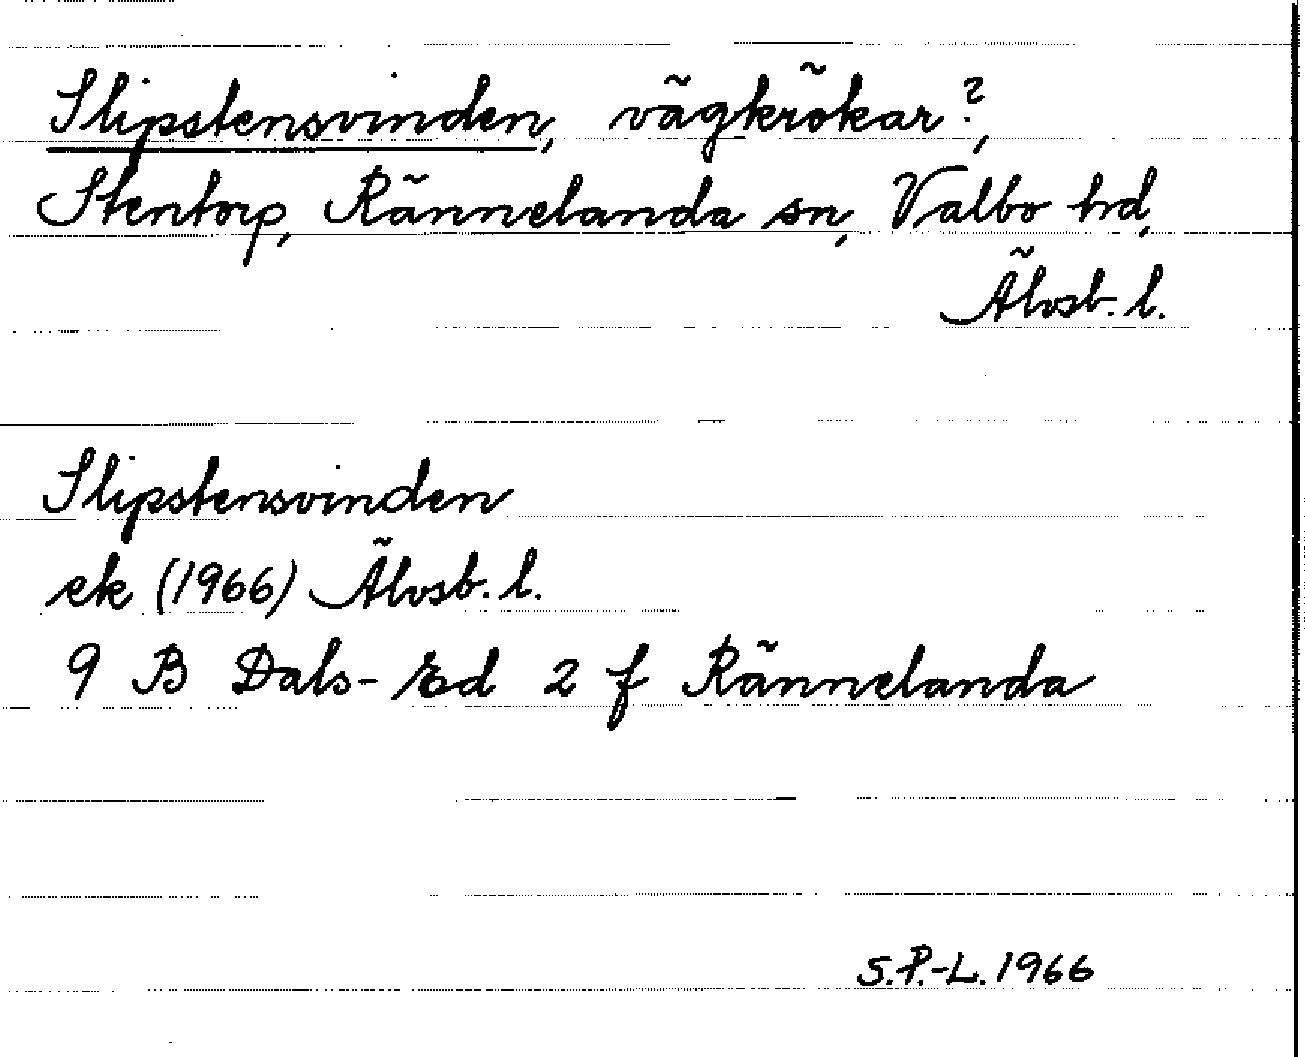 Slipstensvinden, vägkrökar?,
Stentorp, Rännelanda sn, Valbo hd,
Älvsb. l.
Slipstensvinden
ek (1966) Älvsb. l.
9 B Dals-Ed 2 f Rännelanda
S.P.-L. 1966